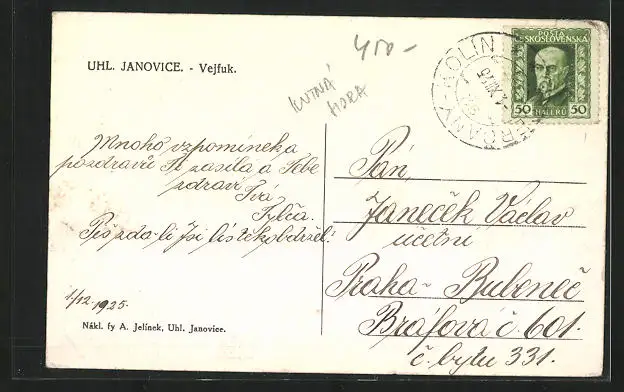 UHL. JANOVICE. - Vejfuk.
450-
KUTNÁ
HORA
POŠTA
ČESKOSLOVENSKÁ
50 HALÉŘŮ 50
KOLÍN
Mnoho vzpomínek a
pozdravů Ti zasílá a Tebe
zdraví Tvá
Piš zda-li Jsi lístek obdržel!
1/12. 1925.
Nákl. fy A. Jelínek, Uhl. Janovice.
Pán,
Janeček Václav
účetní
Praha - Bubeneč
Bráfova č 601.
č. bytu 331.